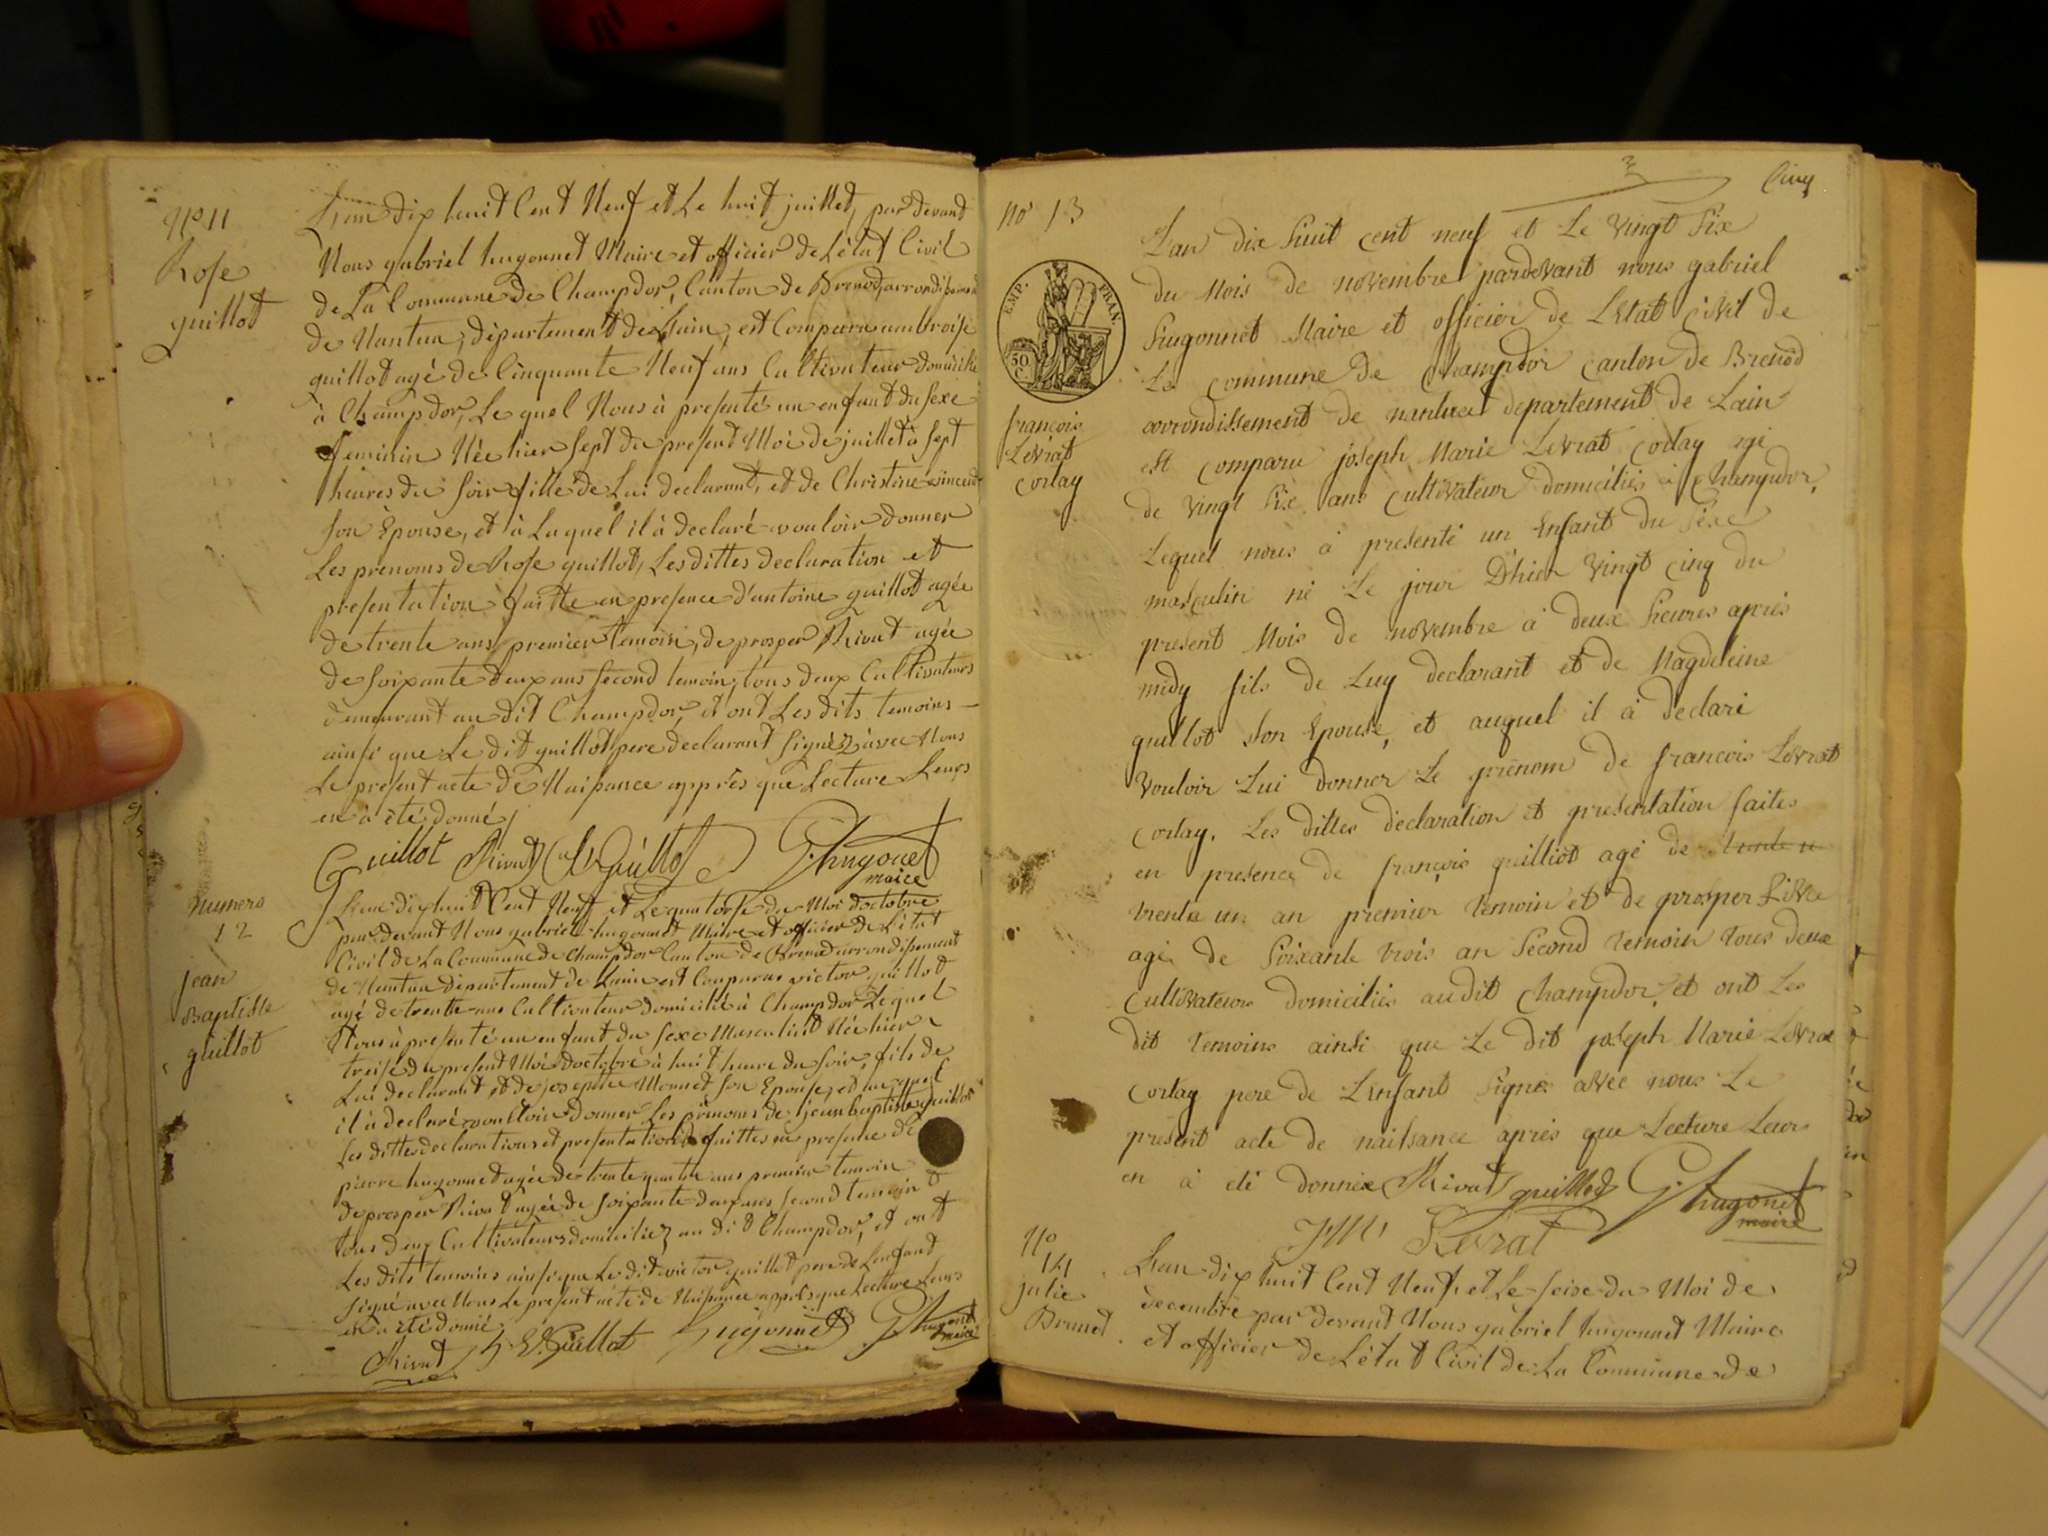 No 11
Rose
guillot
L'an dix huit Cent Neuf et Le huit juillet, par devant
Nous gabriel hugonnet Maire et officier de L'état Civil
de La Commune de Champdor, Canton de Brenod, arrondissement
de Nantua, département de Lain, est Comparu ambroise
guillot agé de Cinquante Neuf ans Cultivateur domicilié
à Champdor, Le quel Nous à presenté un enfant du sexe
feminin Née hier sept du present Moi de juillet à sept
heures du soir fille de Lui declarant, et de Christine vincent
son Epouse, et à Laquel il à declaré vouloir donner
Les prenoms de Rose guillot, Les dittes declaration et
presentation faitte en presence d'antoine guillot agée
de trente ans premier temoin, de prosper Rivat agée
de soixante deux ans second temoin, tous deux Cultivateurs
demeurant au dit Champdor, et ont Les dits temoins
ainsi que Le dit guillot pere declarant signéz avec Nous
Le présent acte de Naissance apprès que Lecture Leurs
en à été donné
Guillot Rivat Guillot G. hugonet
maire
numero
12
jean
Baptiste
guillot
L'an dix huit Cent Neuf et Le quatorse du Moi doctobre
par devant Nous gabriel hugonnet Maire et officier de L'état
Civil de La Commune de Champdor Canton de Brenod arrondissement
de Nantua département de Lain est Comparu victor guillot
agé de trente ans Cultivateur domicilié à Champdor Lequel
Nous à presenté un enfant du sexe Masculint Née hier
treise du present Moi doctobre à huit heure du soir, fils de
Lui declarant et de josephte Monnet son Epouse, et auquel
il à declaré vouloir donner Les prénoms de jean baptiste guillot
Les dittes declarations et presentation faittes en presence de
pierre hugonnet agée de trente quatre ans premier temoin
de prosper Rivat agée de soixante deux ans second temoin
tous deux Cultivateurs domiciliez au dit Champdor, et ont
Les dits temoins ainsi que Le dit victor guillot pere de Lenfant
signé avec Nous Le present acte de Naissance apprès que Lecture Leurs
en a été donné
Rivat Guillot hugonnet G. hugonet
maire
Cinq
No 13
EMP. FRAN.
50
C
francois
Levrat
Corlay
L'an dix huit cent neuf et Le vingt six
du Mois de novembre pardevant nous gabriel
hugonnet Maire et officier de Letat civil de
La commune de Champdor canton de Brenod
arrondissement de nantua departement de Lain
est comparu joseph Marie Levrat Corlay agé
de vingt six ans cultivateur domicilié à Champdor,
Lequel nous à presenté un Enfant du sexe
masculin né Le jour D'hier vingt cinq du
present Mois de novembre à deux heures après
midy fils de Luy declarant et de Magdeleine
guillot son Epouse, et auquel il à declaré
vouloir Lui donner Le prenom de francois Levrat
Corlay. Les dittes declaration et presentation faites
en presence de françois guilliot agé de trente u
trente un an premier temoin et de prosper Riva
agé de soixante trois an second temoin tous deux
cultivateurs domiciliés audit Champdor, et ont Les
dit temoins ainsi que Le dit joseph Marie Levrat
Corlay pere de Lenfant signés avec nous Le
present acte de naissance après que Lecture Leur
en à eté donnée Rivat guillot G. hugonet
maire
JM Levrat
No
14
julie
Brunet
L'an dix huit Cent Neuf, et Le seise du Moi de
decembre par devant Nous gabriel hugonnet Maire
et officier de L'état Civil de La Commune de